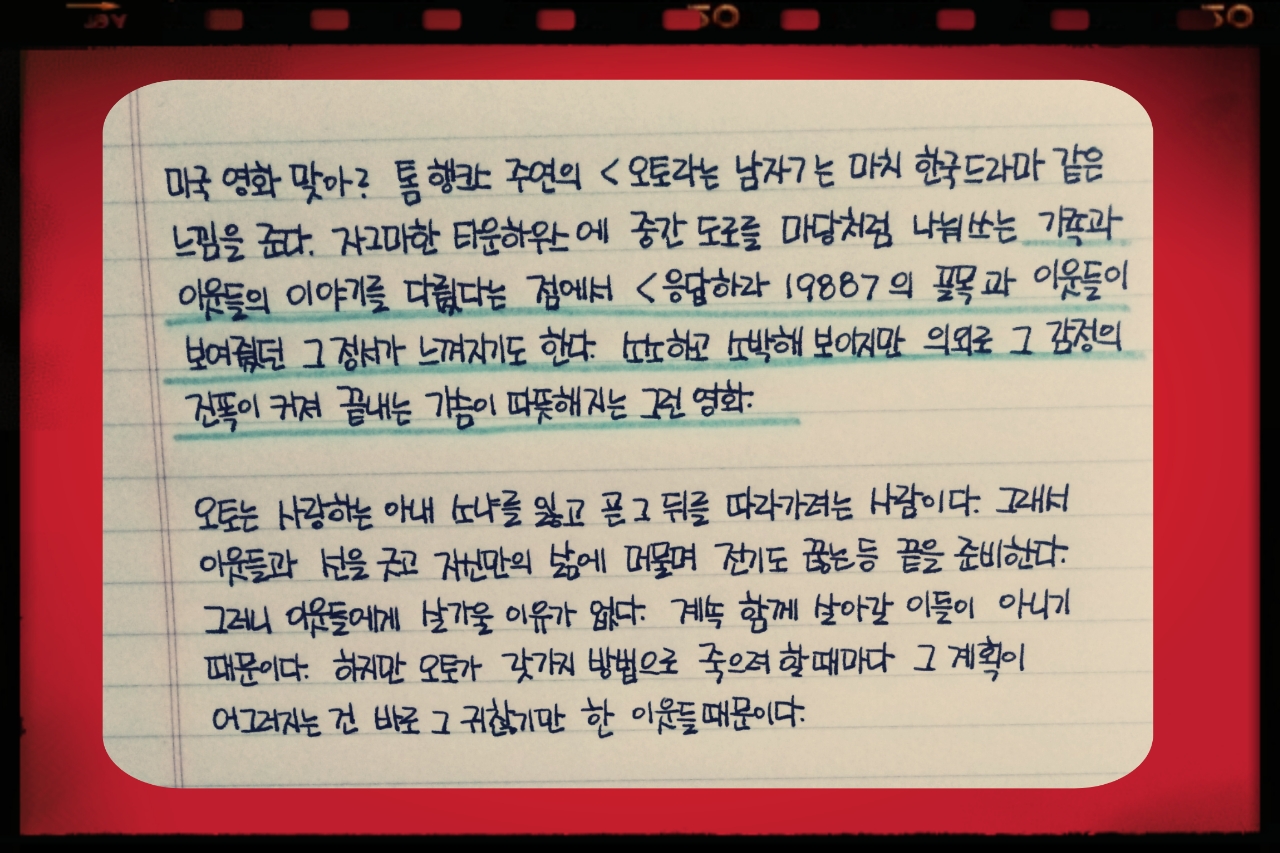 미국 영화 맞아? 톰 행크스 주연의 <오토라는 남자>는 마치 한국드라마 같은
느낌을 준다. 자그마한 타운하우스에 중간 도로를 마당처럼 나눠쓰는 가족과
이웃들의 이야기를 다뤘다는 점에서 <응답하라 1988>의 골목과 이웃들이
보여줬던 그 정서가 느껴지기도 한다. 소소하고 소박해 보이지만 의외로 그 감정의
진폭이 커져 끝내는 가슴이 따뜻해지는 그런 영화.
오토는 사랑하는 아내 소냐를 잃고 곧 그 뒤를 따라가려는 사람이다. 그래서
이웃들과 선을 긋고 자신만의 삶에 머물며 전기도 끊는 등 끝을 준비한다.
그러니 이웃들에게 살가울 이유가 없다. 계속 함께 살아갈 이들이 아니기
때문이다. 하지만 오토가 갖가지 방법으로 죽으려 할 때마다 그 계획이
어그러지는 건 바로 그 귀찮기만 한 이웃들 때문이다.